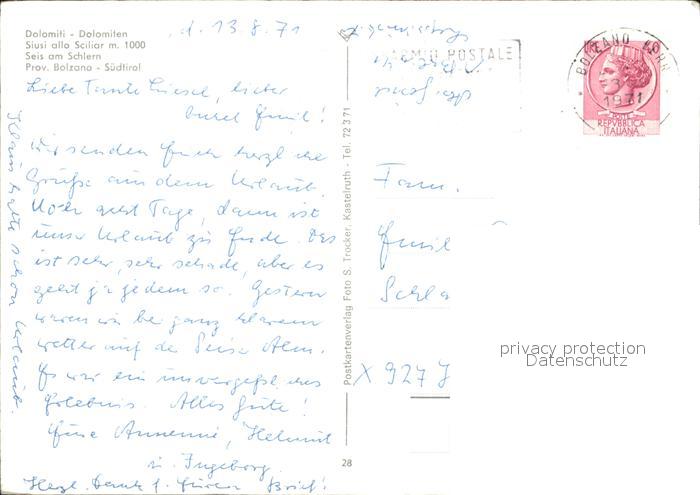 Dolomiti - Dolomiten
Siusi allo Sciliar m. 1000
Seis am Schlern
Prov. Bolzano - Südtirol
d. 13.8.71
Liebe Tante Liesel, lieber
Onkel Emil!
Wir senden Euch herzliche
Grüße aus dem Urlaub.
Noch acht Tage, dann ist
unser Urlaub zu Ende. Das
ist sehr, sehr schade, aber es
geht ja jedem so. Gestern
waren wir bei ganz klarem
Wetter auf der Seiser Alm.
Es war ein unvergeßliches
Erlebnis. Alles Gute!
Eure Annemie, Helmut
u. Ingeborg.
Herzl. Dank f. Euren Brief!
Klaus hatte schon Urlaub.
Postkartenverlag Foto S. Trocker, Kastelruth - Tel. 72371
28
POSTALE
BOLZANO
1971
POSTE
REPVBBLICA
ITALIANA
Fam.
Emil
Schla
X 927
privacy protection
Datenschutz